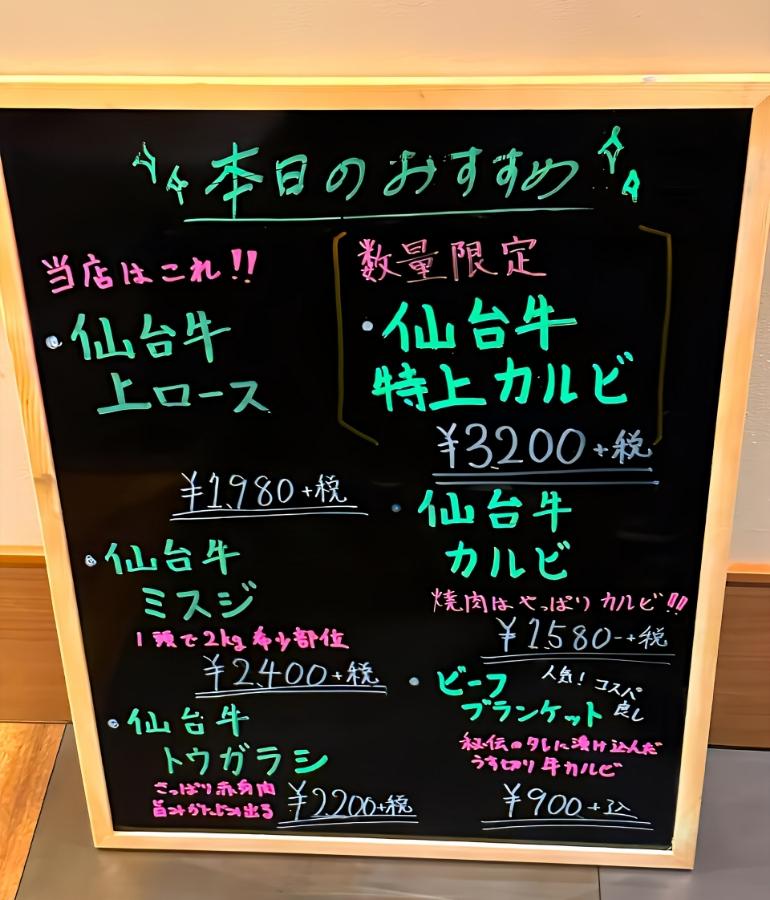 本日のおすすめ
当店はこれ!!
・仙台牛
上ロース
¥1,980+税
・仙台牛
ミスジ
1頭で2kg希少部位
¥2,400+税
・仙台牛
トウガラシ
さっぱり赤身肉
旨みがたっぷり出る
¥2,200+税
数量限定
・仙台牛
特上カルビ
¥3,200+税
・仙台牛
カルビ
焼肉はやっぱりカルビ!!
¥1,580-+税
・ビーフ
ブランケット
人気! コスパ
良し
秘伝のタレに漬け込んだ
うす切り牛カルビ
¥900